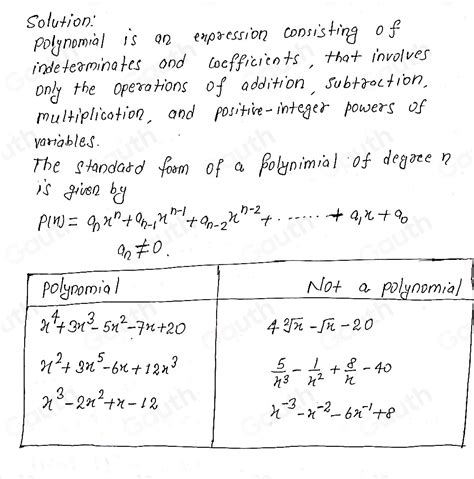 Solution:
polynomial is an expression consisting of
indeterminates and coefficients, that involves
only the operations of addition, subtraction,
multiplication, and positive-integer powers of
variables.
The standard form of a polynimial of degree n
is given by
P(x) = aₙxⁿ + aₙ₋₁xⁿ⁻¹ + aₙ₋₂xⁿ⁻² + ...... + a₁x + a₀
aₙ ≠ 0.
polynomial | Not a polynomial
x⁴+3x³-5x²-7x+20 | 4∛x - √x - 20
x²+3x⁵-6x+12x³ | 5/x³ - 1/x² + 8/x - 40
x³-2x²+x-12 | x⁻³-x⁻²-6x⁻¹+8
Gauth